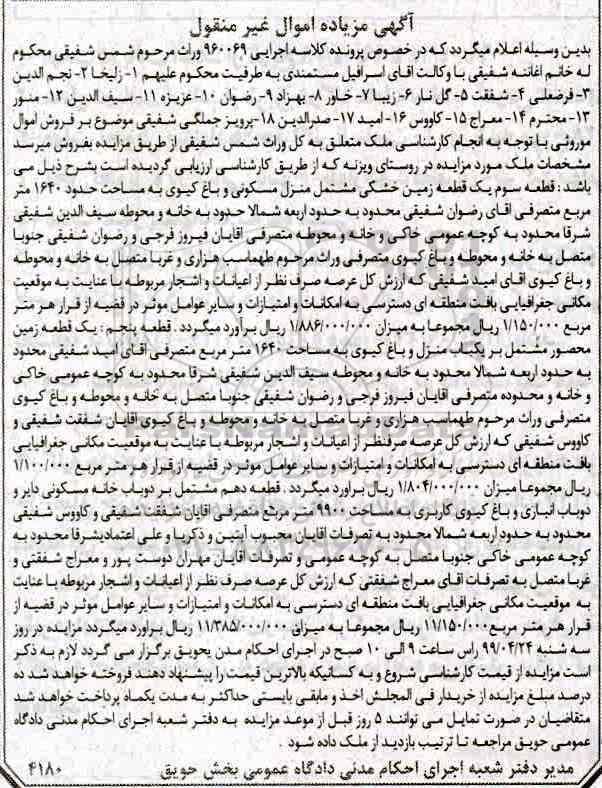 آگهی مزایده اموال غیر منقول
بدین وسیله اعلام میگردد که در خصوص پرونده کلاسه اجرایی ۹۶۰۰۶۹ وراث مرحوم شمس شفیقی محکوم
له خانم اغاننه شفیقی با وکالت اقای اسرافیل مستمندی به طرفیت محکوم علیهم ۱- زلیخا ۲- نجم الدین
۳- فرضعلی ۴- شفقت ۵- گل نار ۶- زیبا ۷- خاور ۸- بهزاد ۹- رضوان ۱۰- عزیزه ۱۱- سیف الدین ۱۲- منور
۱۳- محترم ۱۴- معراج ۱۵- کاووس ۱۶- امید ۱۷- صدرالدین ۱۸- پرویز جملگی شفیقی موضوع بر فروش اموال
موروثی با توجه به انجام کارشناسی ملک متعلق به کل وراث شمس شفیقی از طریق مزایده بفروش میرسد
مشخصات ملک مورد مزایده در روستای ویزنه که از طریق کارشناسی ارزیابی گردیده است بشرح ذیل می
باشد : قطعه سوم یک قطعه زمین خشکی مشتمل منزل مسکونی و باغ کیوی به مساحت حدود ۱۶۴۰ متر
مربع متصرفی اقای رضوان شفیقی محدود به حدود اربعه شمالا حدود به خانه و محوطه سیف الدین شفیقی
شرقا محدود به کوچه عمومی خاکی و خانه و محوطه متصرفی اقایان فیروز فرجی و رضوان شفیقی جنوبا
متصل به خانه و محوطه و باغ کیوی متصرفی وراث مرحوم طهماسب هزاری و غربا متصل به خانه و محوطه
و باغ کیوی اقای امید شفیقی که ارزش کل عرصه صرف نظر از اعیانات و اشجار مربوطه با عنایت به موقعیت
مکانی جغرافیایی بافت منطقه ای دسترسی به امکانات و امتیازات و سایر عوامل موثر در قضیه از قرار هر متر
مربع ۱/۱۵۰/۰۰۰ ریال مجموعا به میزان ۱/۸۸۶/۰۰۰/۰۰۰ ریال برآورد میگردد . قطعه پنجم : یک قطعه زمین
محصور مشتمل بر یکباب منزل و باغ کیوی به مساحت ۱۶۴۰ متر مربع متصرفی اقای امید شفیقی محدود
به حدود اربعه شمالا محدود به خانه و محوطه سیف الدین شفیقی شرقا محدود به کوچه عمومی خاکی
و خانه و محدوده متصرفی اقایان فیروز فرجی و رضوان شفیقی جنوبا متصل به خانه و محوطه و باغ کیوی
متصرفی وراث مرحوم طهماسب هزاری و غربا متصل به خانه و محوطه و باغ کیوی اقایان شفقت شفیقی و
کاووس شفیقی که ارزش کل عرصه صرفنظر از اعیانات و اشجار مربوطه با عنایت به موقعیت مکانی جغرافیایی
بافت منطقه ای دسترسی به امکانات و امتیازات و سایر عوامل موثر در قضیه از قرار هر متر مربع ۱/۱۰۰/۰۰۰
ریال مجموعا میزان ۱/۸۰۴/۰۰۰/۰۰۰ ریال براورد میگردد . قطعه دهم مشتمل بر دوباب خانه مسکونی دایر و
دوباب انباری و باغ کیوی کاربری به مساحت ۹۹۰۰ متر مربع متصرفی اقایان شفقت شفیقی و کاووس شفیقی
محدود به حدود اربعه شمالا محدود به تصرفات اقایان محبوب آبتین و ذکریا و علی اعتمادیشرقا محدود به
کوچه عمومی خاکی جنوبا متصل به کوچه عمومی و تصرفات اقایان مهران دوست پور و معراج شفقتی و
غربا متصل به تصرفات اقای معراج شفقتی که ارزش کل عرصه صرف نظر از اعیانات و اشجار مربوطه با عنایت
به موقعیت مکانی جغرافیایی بافت منطقه ای دسترسی به امکانات و امتیازات و سایر عوامل موثر در قضیه از
قرار هر متر مربع ۱۱/۱۵۰/۰۰۰ ریال مجموعا به میزان ۱۱/۳۸۵/۰۰۰/۰۰۰ ریال براورد میگردد مزایده در روز
سه شنبه ۹۹/۰۴/۲۴ راس ساعت ۹ الی ۱۰ صبح در اجرای احکام مدن یحویق برگزار می گردد لازم به ذکر
است مزایده از قیمت کارشناسی شروع و به کسانیکه بالاترین قیمت را پیشنهاد دهند فروخته خواهد شد ده
درصد مبلغ مزایده از خریدار فی المجلس اخذ و مابقی بایستی حداکثر به مدت یکماه پرداخت خواهد شد
متقاضیان در صورت تمایل می توانند ۵ روز قبل از موعد مزایده به دفتر شعبه اجرای احکام مدنی دادگاه
عمومی حویق مراجعه تا ترتیب بازدید از ملک داده شود .
مدیر دفتر شعبه اجرای احکام مدنی دادگاه عمومی بخش حویق
۴۱۸۰